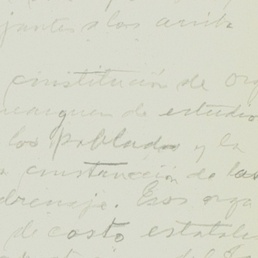 juntas a los arrib
constitución de org
encarguen de estudio
los poblados y la
construcción de las
drenaje. Esos orga
de costo estatales